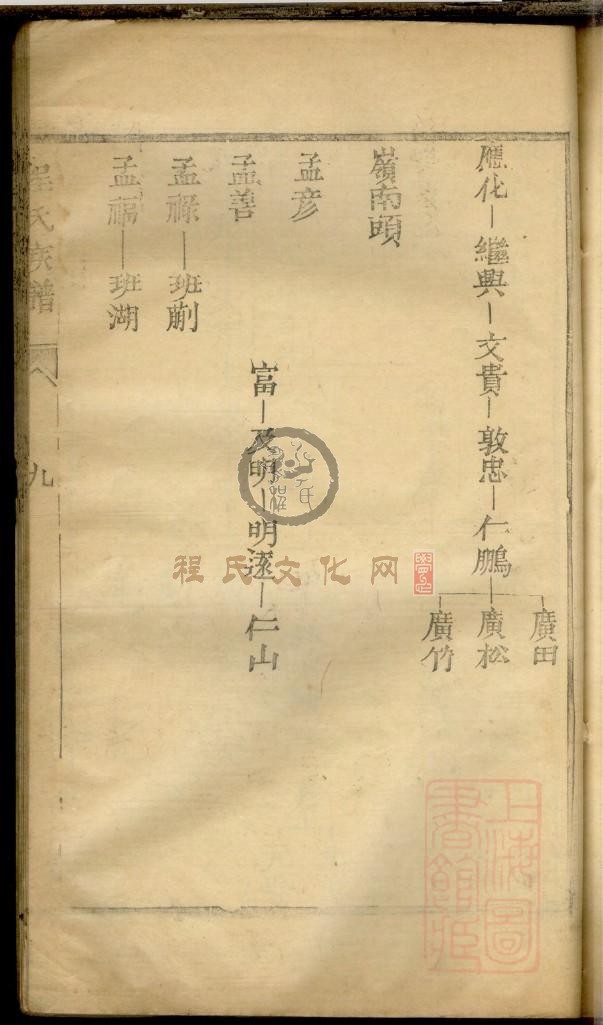 應化—繼興—文貴—敦忠—仁鵬
廣田
廣松
廣竹
嶺南頭
孟彦
孟善
富—及明—明遠—仁山
孟祿——班蒯
孟福——班湖
程氏族譜
九
程氏文化网
上海圖書館藏